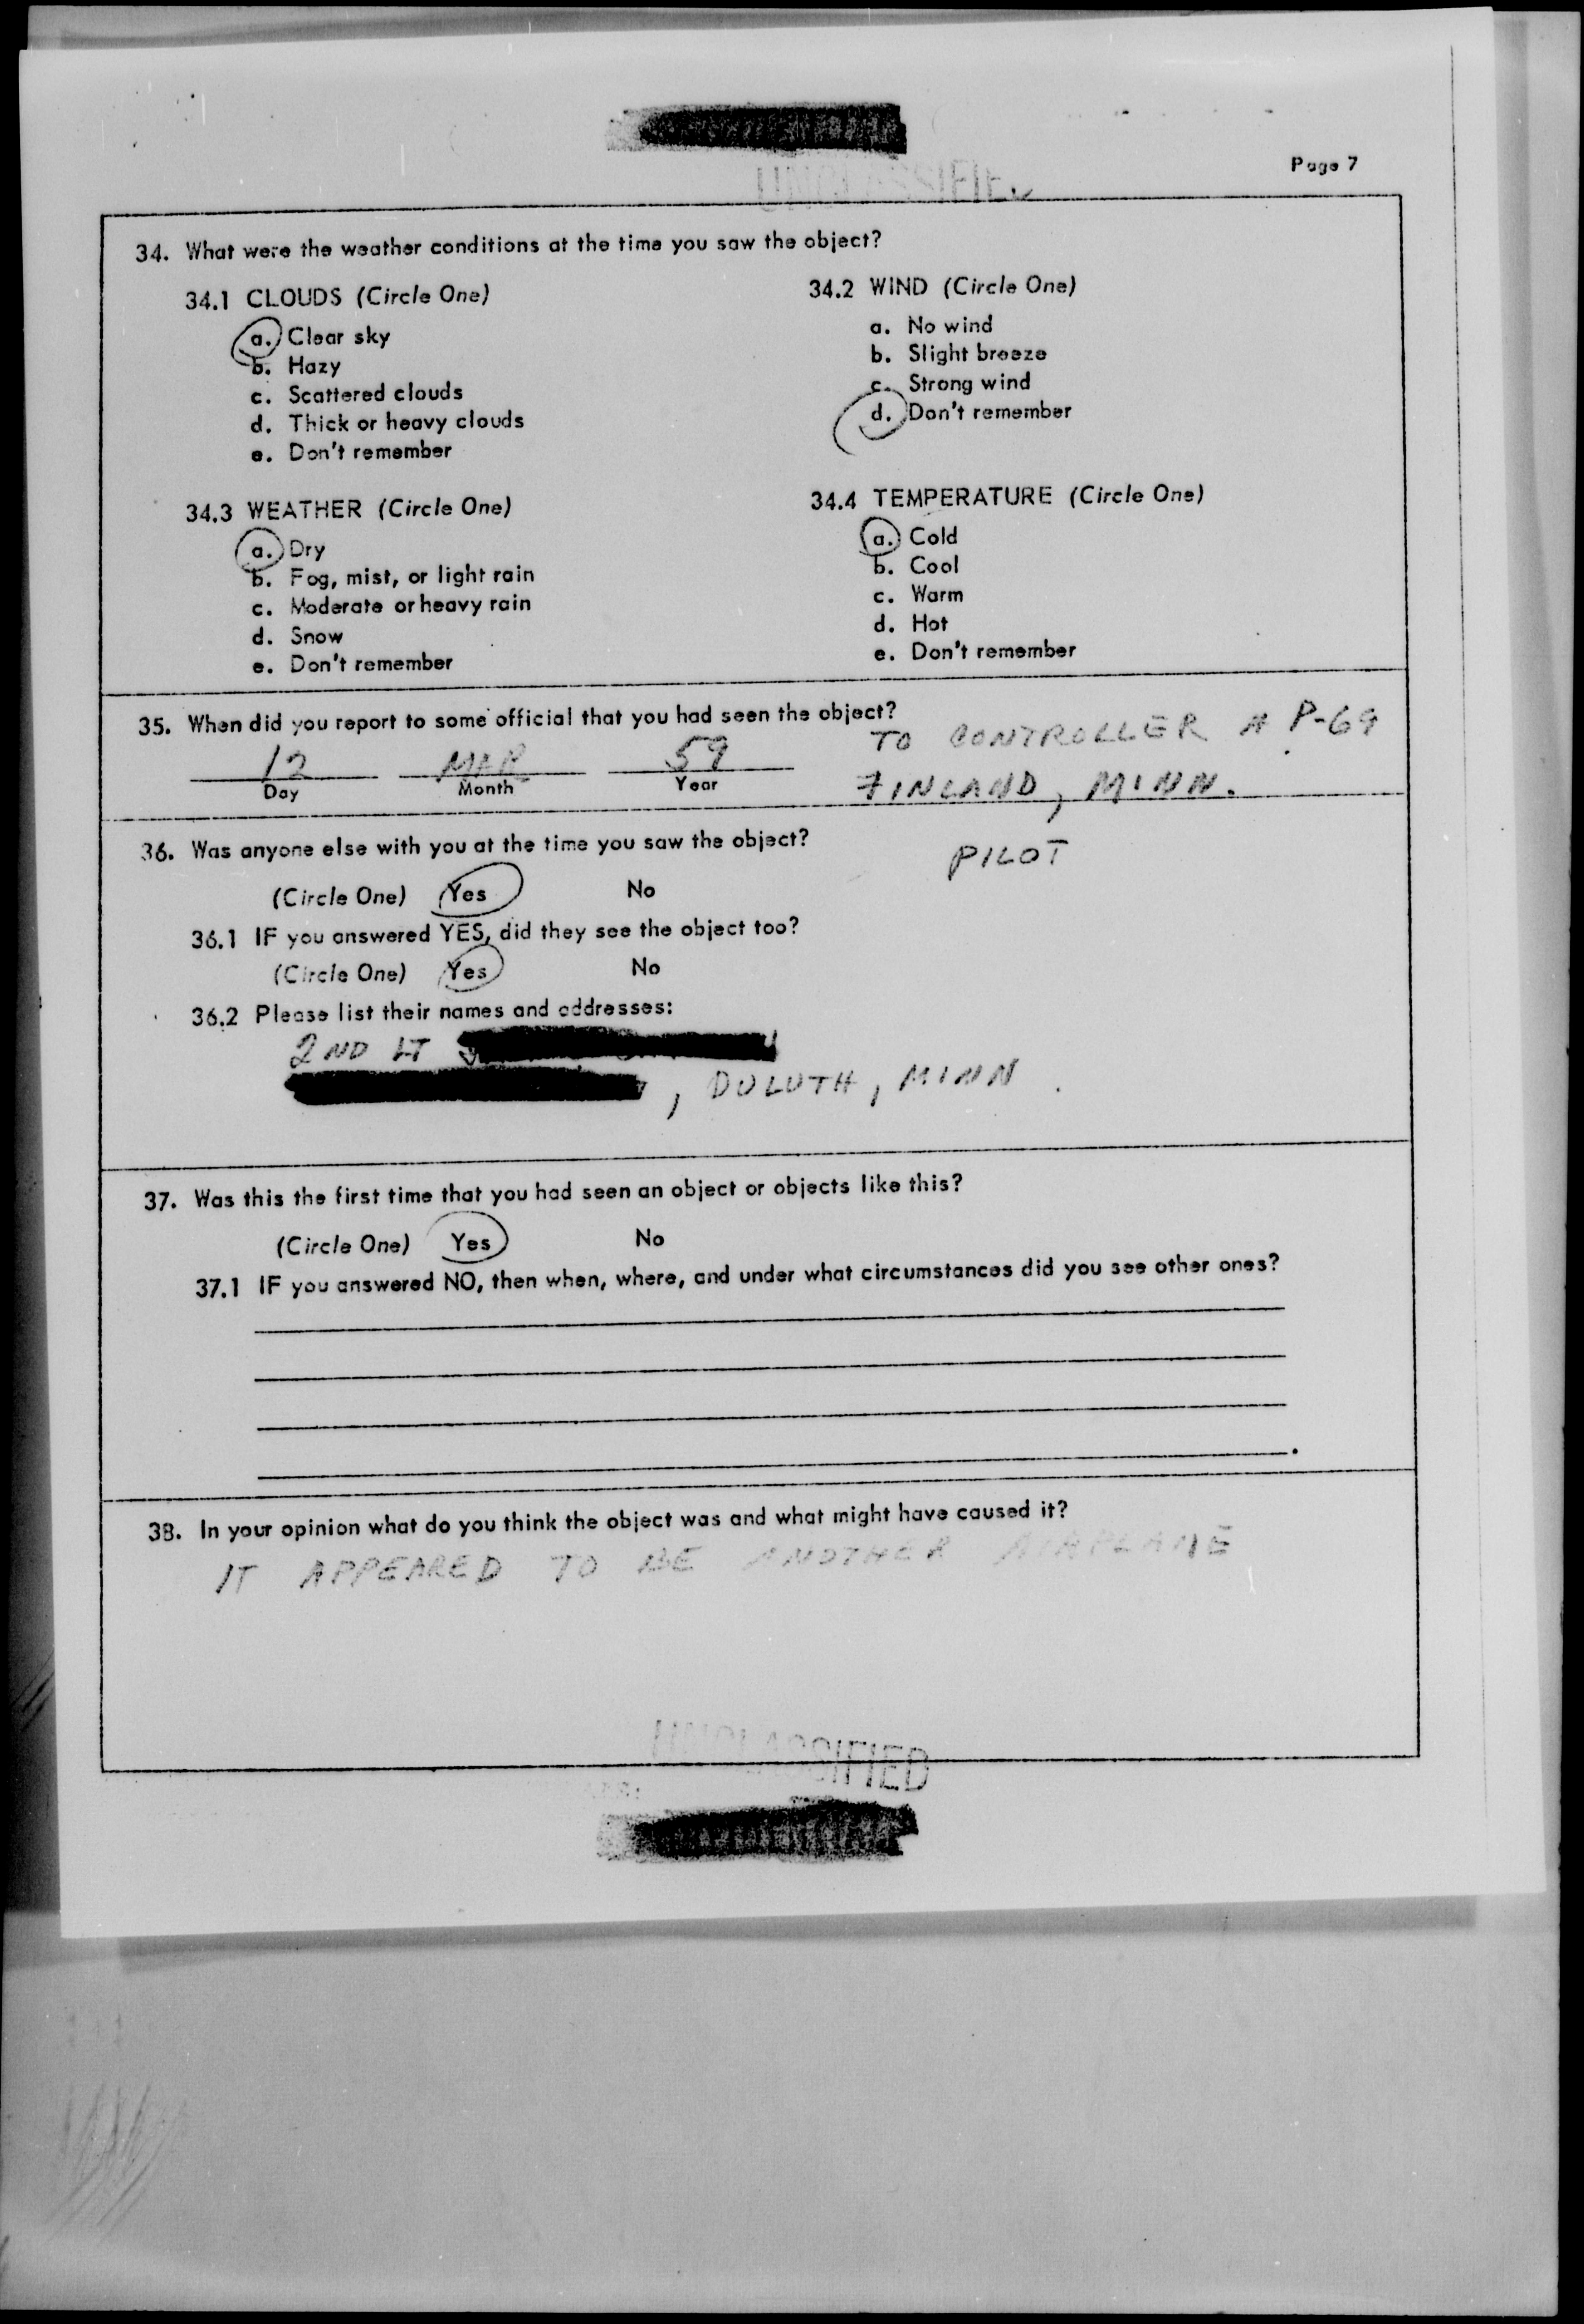 Page 7
UNCLASSIFIED
34. What were the weather conditions at the time you saw the object?
34.1 CLOUDS (Circle One)
a. Clear sky
b. Hazy
c. Scattered clouds
d. Thick or heavy clouds
e. Don't remember
34.2 WIND (Circle One)
a. No wind
b. Slight breeze
c. Strong wind
d. Don't remember
34.3 WEATHER (Circle One)
a. Dry
b. Fog, mist, or light rain
c. Moderate or heavy rain
d. Snow
e. Don't remember
34.4 TEMPERATURE (Circle One)
a. Cold
b. Cool
c. Warm
d. Hot
e. Don't remember
35. When did you report to some official that you had seen the object?
12 MAR 59
Day Month Year
TO CONTROLLER A P-69
FINLAND, MINN.
36. Was anyone else with you at the time you saw the object?
PILOT
(Circle One) Yes No
36.1 IF you answered YES, did they see the object too?
(Circle One) Yes No
36.2 Please list their names and addresses:
2ND LT
, DULUTH, MINN.
37. Was this the first time that you had seen an object or objects like this?
(Circle One) Yes No
37.1 IF you answered NO, then when, where, and under what circumstances did you see other ones?
38. In your opinion what do you think the object was and what might have caused it?
IT APPEARED TO BE ANOTHER AIRPLANE
UNCLASSIFIED